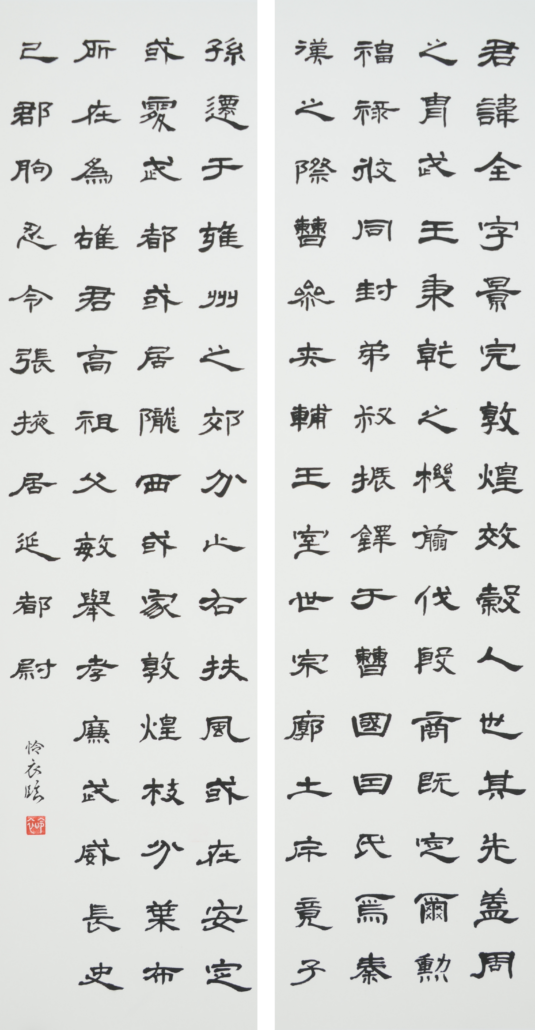 君諱全字景完敦煌效穀人也其先蓋周
之胄武王秉乾之機翦伐殷商既定爾勳
福祿攸同封弟叔振鐸于曹國因氏焉秦
漢之際曹參夾輔王室世宗廓土斥竟子
孫遷于雍州之郊分止右扶風或在安定
或處武都或居隴西或家敦煌枝分葉布
所在為雄君高祖父敏舉孝廉武威長史
巳郡朐忍令張掖居延都尉
怜衣臨